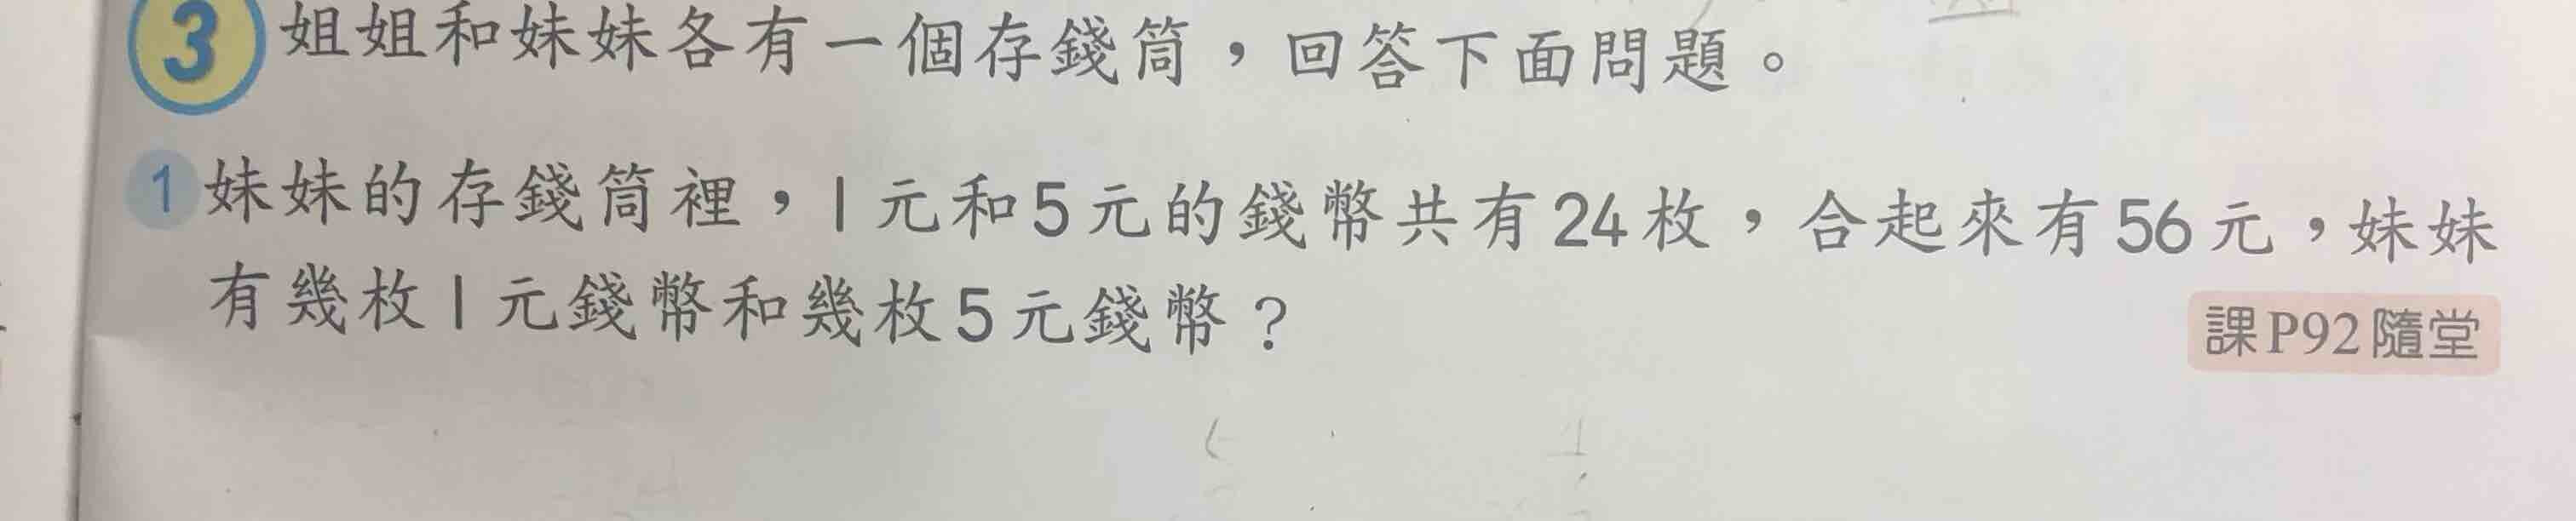 3 姐姐和妹妹各有一個存錢筒，回答下面問題。
1 妹妹的存錢筒裡，1元和5元的錢幣共有24枚，合起來有56元，妹妹
有幾枚1元錢幣和幾枚5元錢幣？
課P92隨堂